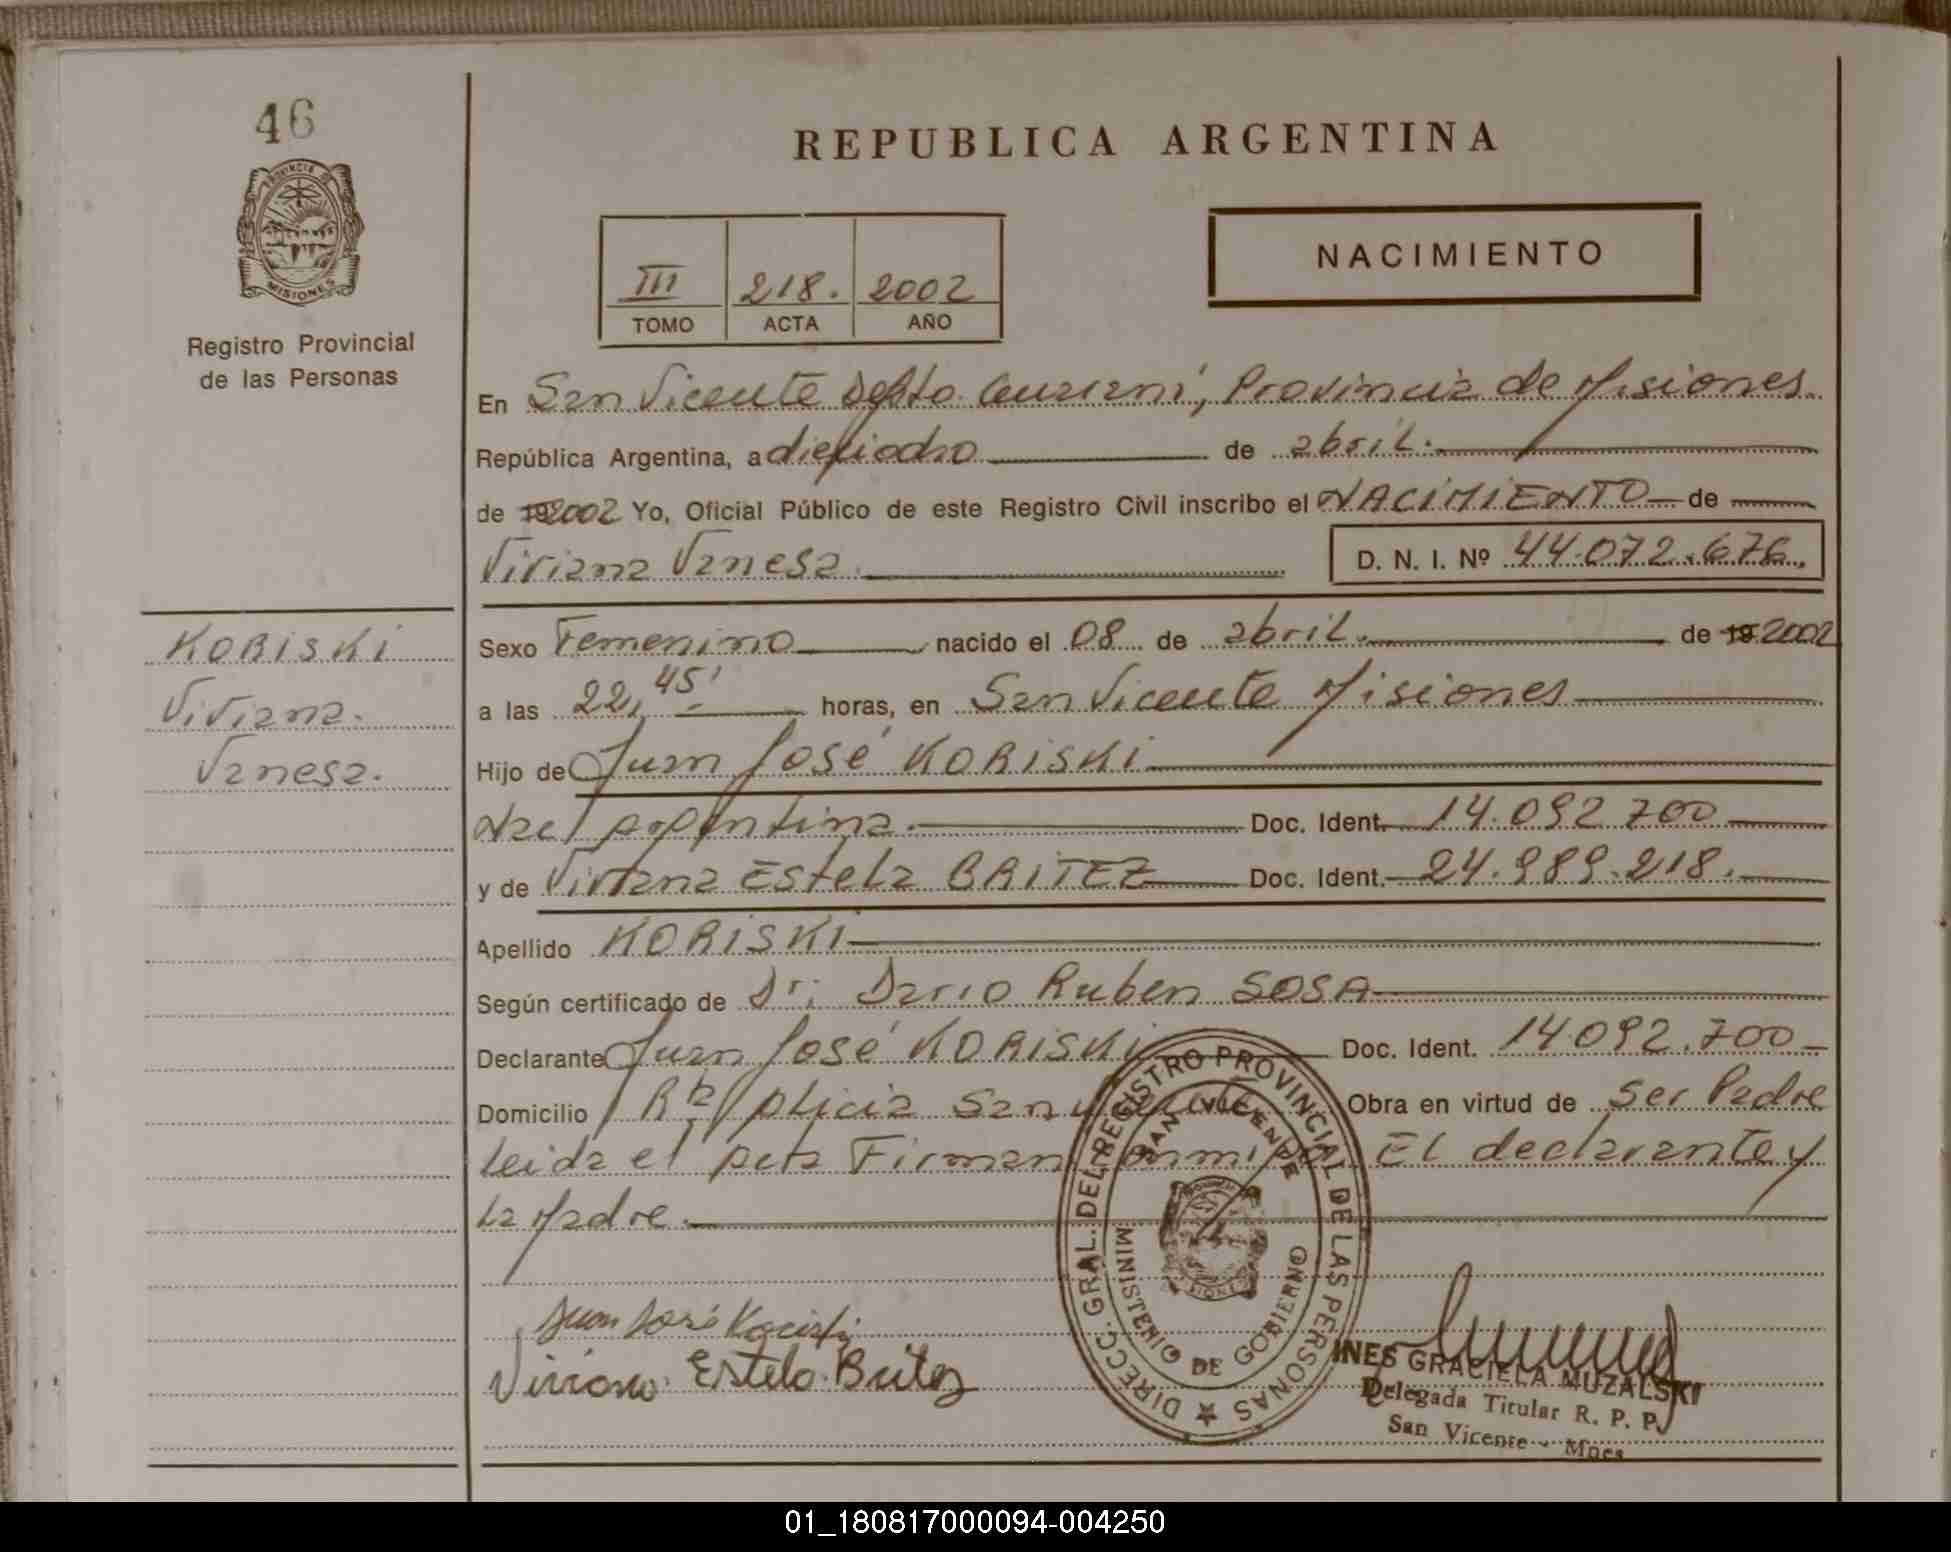 46
PROVINCIA DE
MISIONES
Registro Provincial
de las Personas
REPUBLICA ARGENTINA
NACIMIENTO
III 218. 2002
TOMO ACTA AÑO
En San Vicente Depto Guarani, Provincia de Misiones.
República Argentina, a dieciocho de abril.
de 192002 Yo, Oficial Público de este Registro Civil inscribo el NACIMIENTO de
Viviana Vanesa. D. N. I. Nº 44.072.676.
KORISKI
Viviana.
Vanesa.
Sexo Femenino nacido el 08 de abril. de 19 2002
a las 22,45' horas, en San Vicente Misiones
Hijo de Juan José KORISKI
Nac Argentina. Doc. Ident. 14.092.700
y de Viviana Estela BRITEZ Doc. Ident. 24.989.218.
Apellido KORISKI
Según certificado de Dr: Dario Ruben SOSA
Declarante Juan José KORISKI Doc. Ident. 14.092.700
Domicilio San Vicente Obra en virtud de Ser Padre
Leida el Acta Firman conmigo El declarante y
La Madre.
Juan José Koriski
Viviana Estela Britez
DIRECC. GRAL. DEL REGISTRO PROVINCIAL DE LAS PERSONAS
SAN VICENTE
MINISTERIO DE GOBIERNO
INES GRACIELA MUZALSKI
Delegada Titular R. P. P.
San Vicente - Mnes
01_180817000094-004250